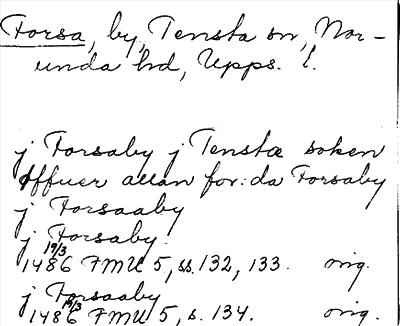 Forsa, by, Tensta sn, Nor-
unda hd, Upps. l.
j Forsaby j Tenstæ soken
offuer allan for:da Forsaby
j Forsaaby
j Forsaby.
19/3
1486 FMU 5, ss. 132, 133. orig.
j Forsaaby
19/3
1486 FMU 5, s. 134. orig.